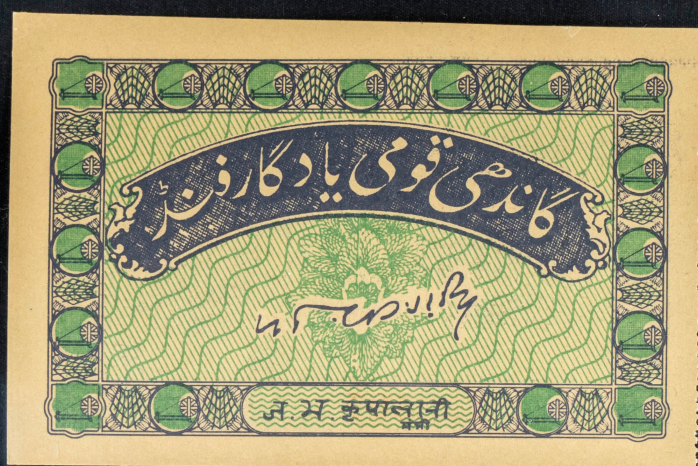 گاندھی قومی یادگار فنڈ
ज भ कृपालानी
मंत्री